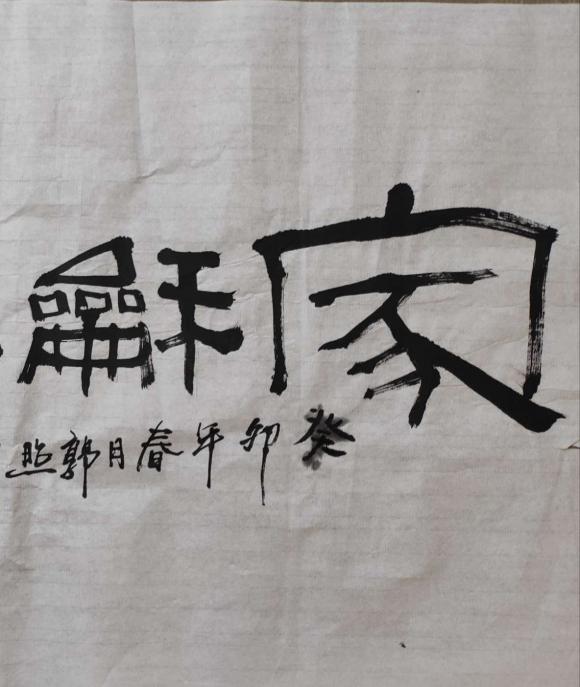 家龢
癸卯年春月郭照